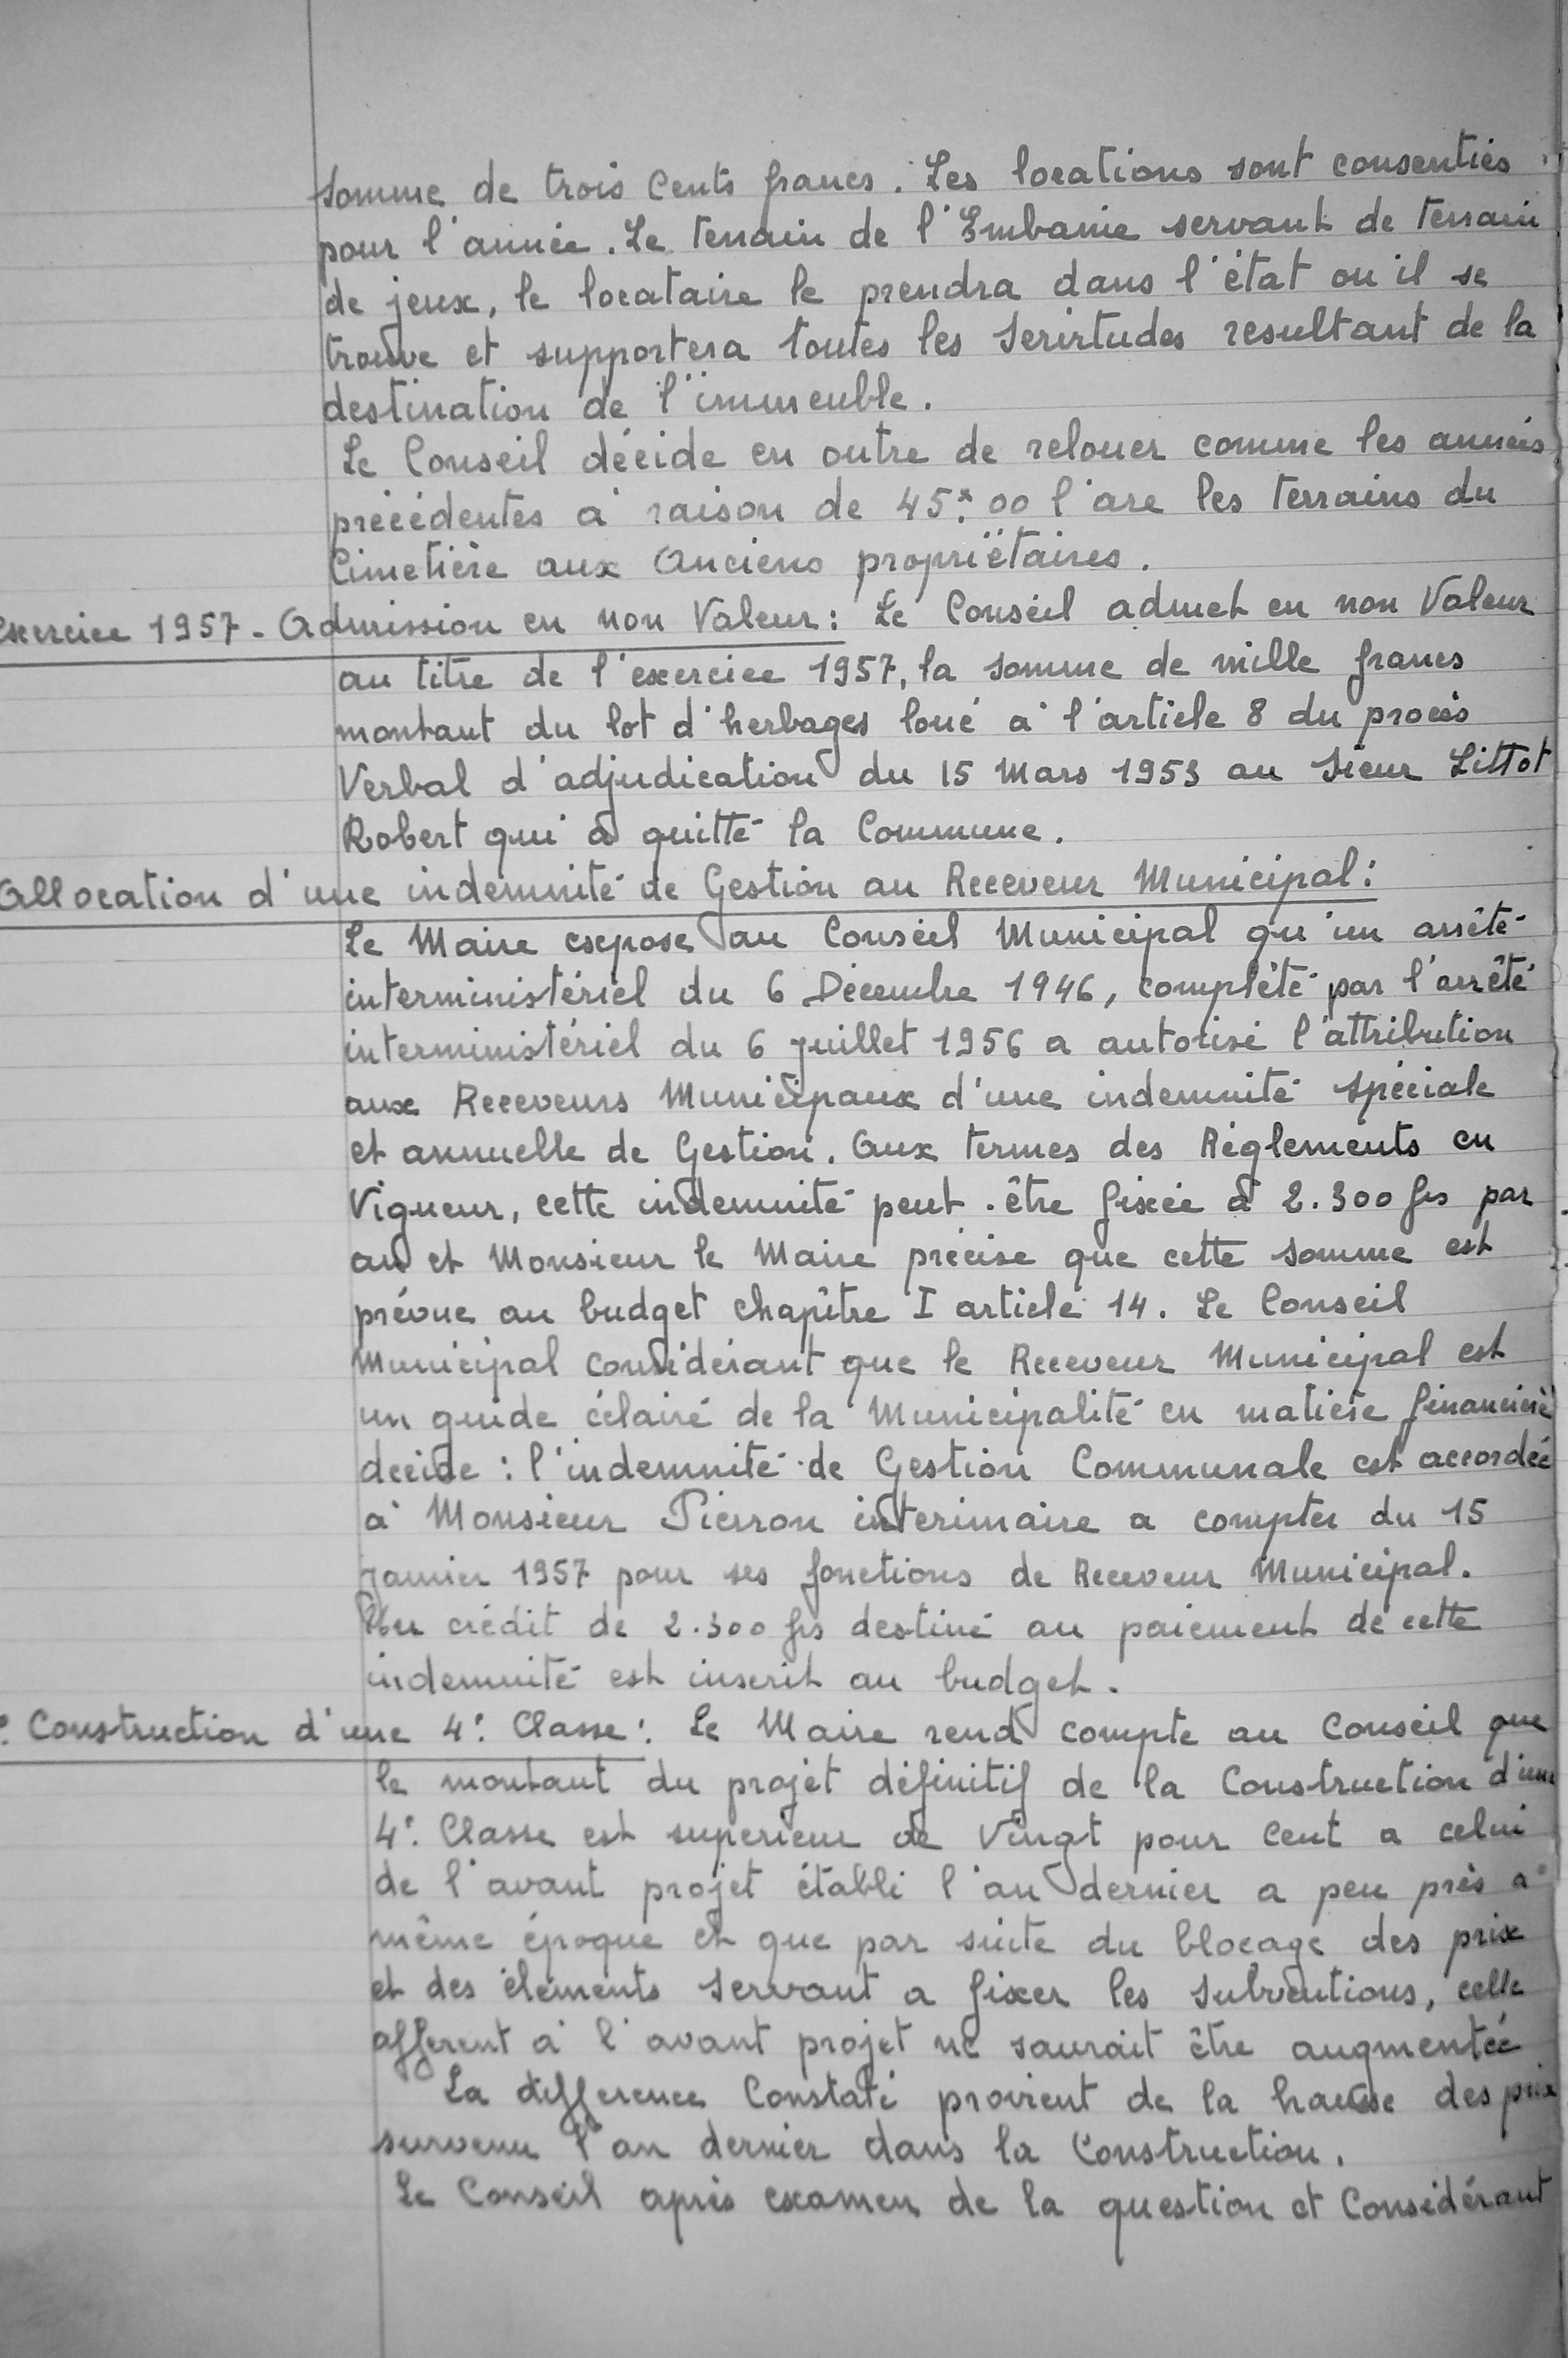 somme de trois Cents francs. Les locations sont consenties
pour l'année. Le terrain de l'Embanie servant de terrain
de jeux, le locataire le prendra dans l'état ou il se
trouve et supportera toutes les servitudes resultant de la
destination de l'immeuble.
Le Conseil décide en outre de relouer comme les années
précédentes à raison de 45.00 l'are les terrains du
Cimetière aux Anciens propriétaires.
Exercice 1957 - Admission en non Valeur : Le Conseil admet en non Valeur
au titre de l'exercice 1957, la somme de mille francs
montant du lot d'herbages loué à l'article 8 du procès
Verbal d'adjudication du 15 Mars 1953 au Sieur Littot
Robert qui a quitté la Commune.
Allocation d'une indemnité de Gestion au Receveur Municipal :
Le Maire expose au Conseil Municipal qu'un arrêté
interministériel du 6 Décembre 1946, complété par l'arrêté
interministériel du 6 juillet 1956 a autorisé l'attribution
aux Receveurs Municipaux d'une indemnité spéciale
et annuelle de Gestion. Aux termes des Réglements en
Vigueur, cette indemnité peut être fixée à 2.300 frs par
an et Monsieur le Maire précise que cette somme est
prévue au budget chapître I article 14. Le Conseil
Municipal considérant que le Receveur Municipal est
un guide éclairé de la Municipalité en matière financière
decide : l'indemnité de Gestion Communale est accordée
à Monsieur Pierron interimaire a compter du 15
janvier 1957 pour ses fonctions de Receveur Municipal.
Un crédit de 2.300 frs destiné au paiement de cette
indemnité est inscrit au budget.
Construction d'une 4e Classe : Le Maire rend compte au Conseil que
le montant du projet définitif de la Construction d'une
4e Classe est superieur de Vingt pour Cent a celui
de l'avant projet établi l'an dernier a peu près à
même époque et que par suite du blocage des prix
et des éléments servant a fixer les subventions, celle
afferent à l'avant projet ne saurait être augmentée
La difference Constaté provient de la hausse des prix
survenu l'an dernier dans la Construction.
Le Conseil après examen de la question et Considérant